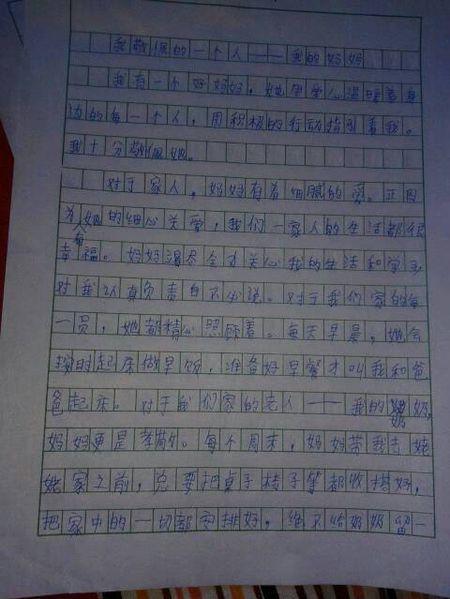 我敬佩的一个人——我的妈妈
我有一个好妈妈，她用爱心温暖着身
边的每一个人，用积极的行动指引着我。
我十分敬佩她。
对于家人，妈妈有着细腻的爱。正因
为她的细心关爱，我们一家人的生活都很
幸福。妈妈竭尽全力关心我的生活和学习
对我认真负责自不必说。对于我们家的每
一员，她都精心照顾着。每天早晨，她会
按时起床做早饭，准备好早餐才叫我和爸
爸起床。对于我们家的老人——我的奶奶，
妈妈更是孝敬。每个周末，妈妈带我去姥
姥家之前，总要把桌子椅子等都收拾好，
把家中的一切都安排好，绝不给奶奶留一